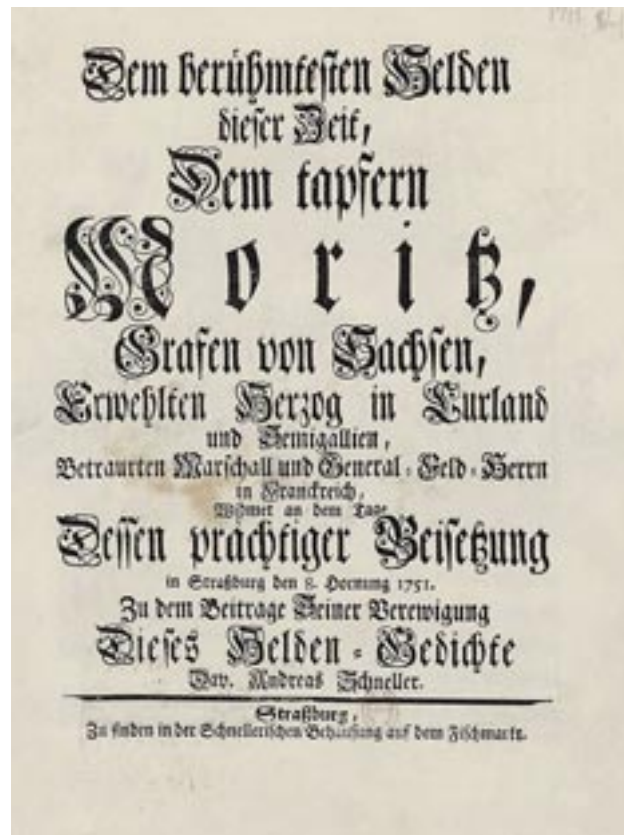 1751
Dem berühmtesten Helden
dieser Zeit,
Dem tapfern
Moritz,
Grafen von Sachsen,
Erwehlten Herzog in Curland
und Semigallien,
Betraurten Marschall und General-Feld-Herrn
in Franckreich,
Widmet an dem Tage
Dessen prächtiger Beisetzung
in Straßburg den 8. Hornung 1751.
Zu dem Beitrage Seiner Verewigung
Dieses Helden-Gedichte
Dav. Andreas Schneller.
Straßburg,
Zu finden in der Schnellerischen Behausung auf dem Fischmarkt.